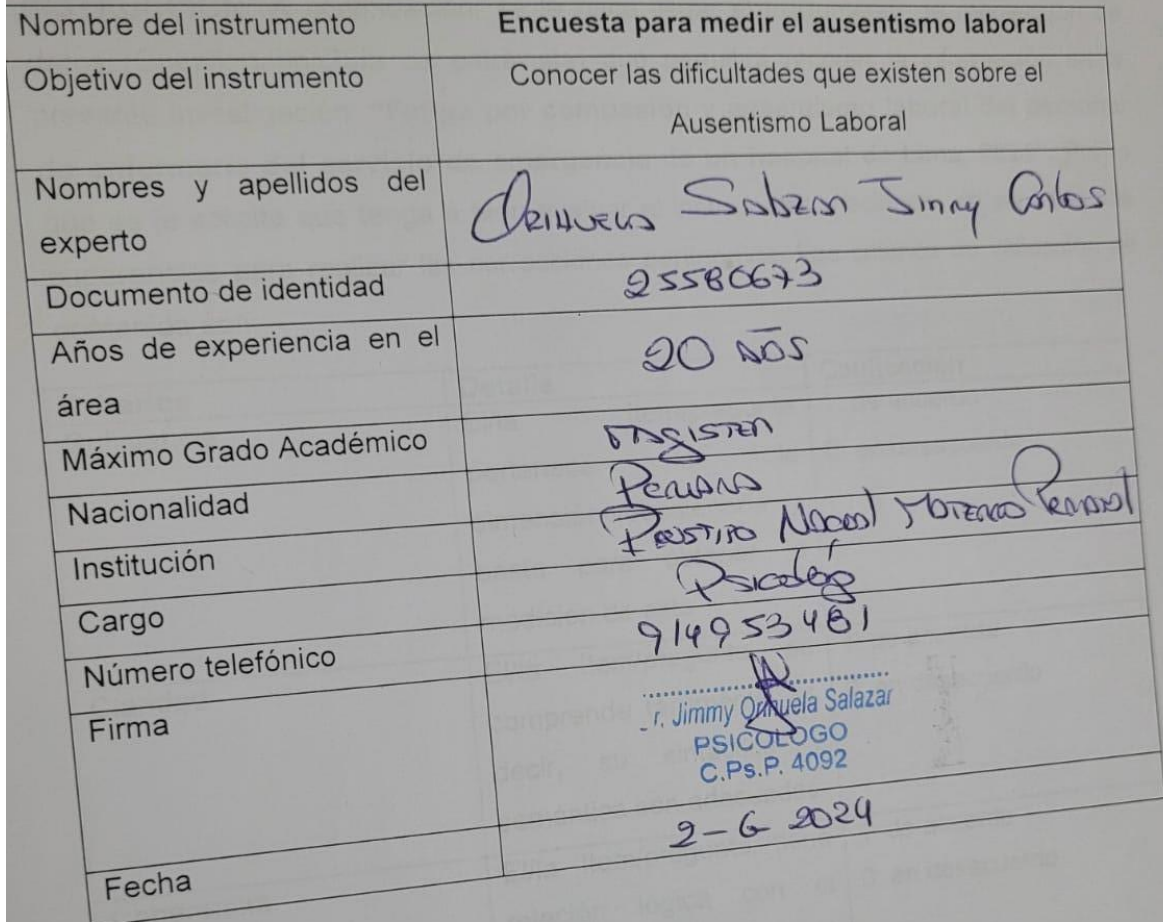 Nombre del instrumento Encuesta para medir el ausentismo laboral
Objetivo del instrumento Conocer las dificultades que existen sobre el
Ausentismo Laboral
Nombres y apellidos del
experto Orihuela Salazar Jimmy Carlos
Documento de identidad 25580673
Años de experiencia en el
área 20 años
Máximo Grado Académico Magister
Nacionalidad Peruana
Institución Nacional Materno Perinatal
Cargo Psicólogo
Número telefónico 914953481
Firma
r. Jimmy Orihuela Salazar
PSICOLOGO
C.Ps.P. 4092
Fecha 2-6-2024